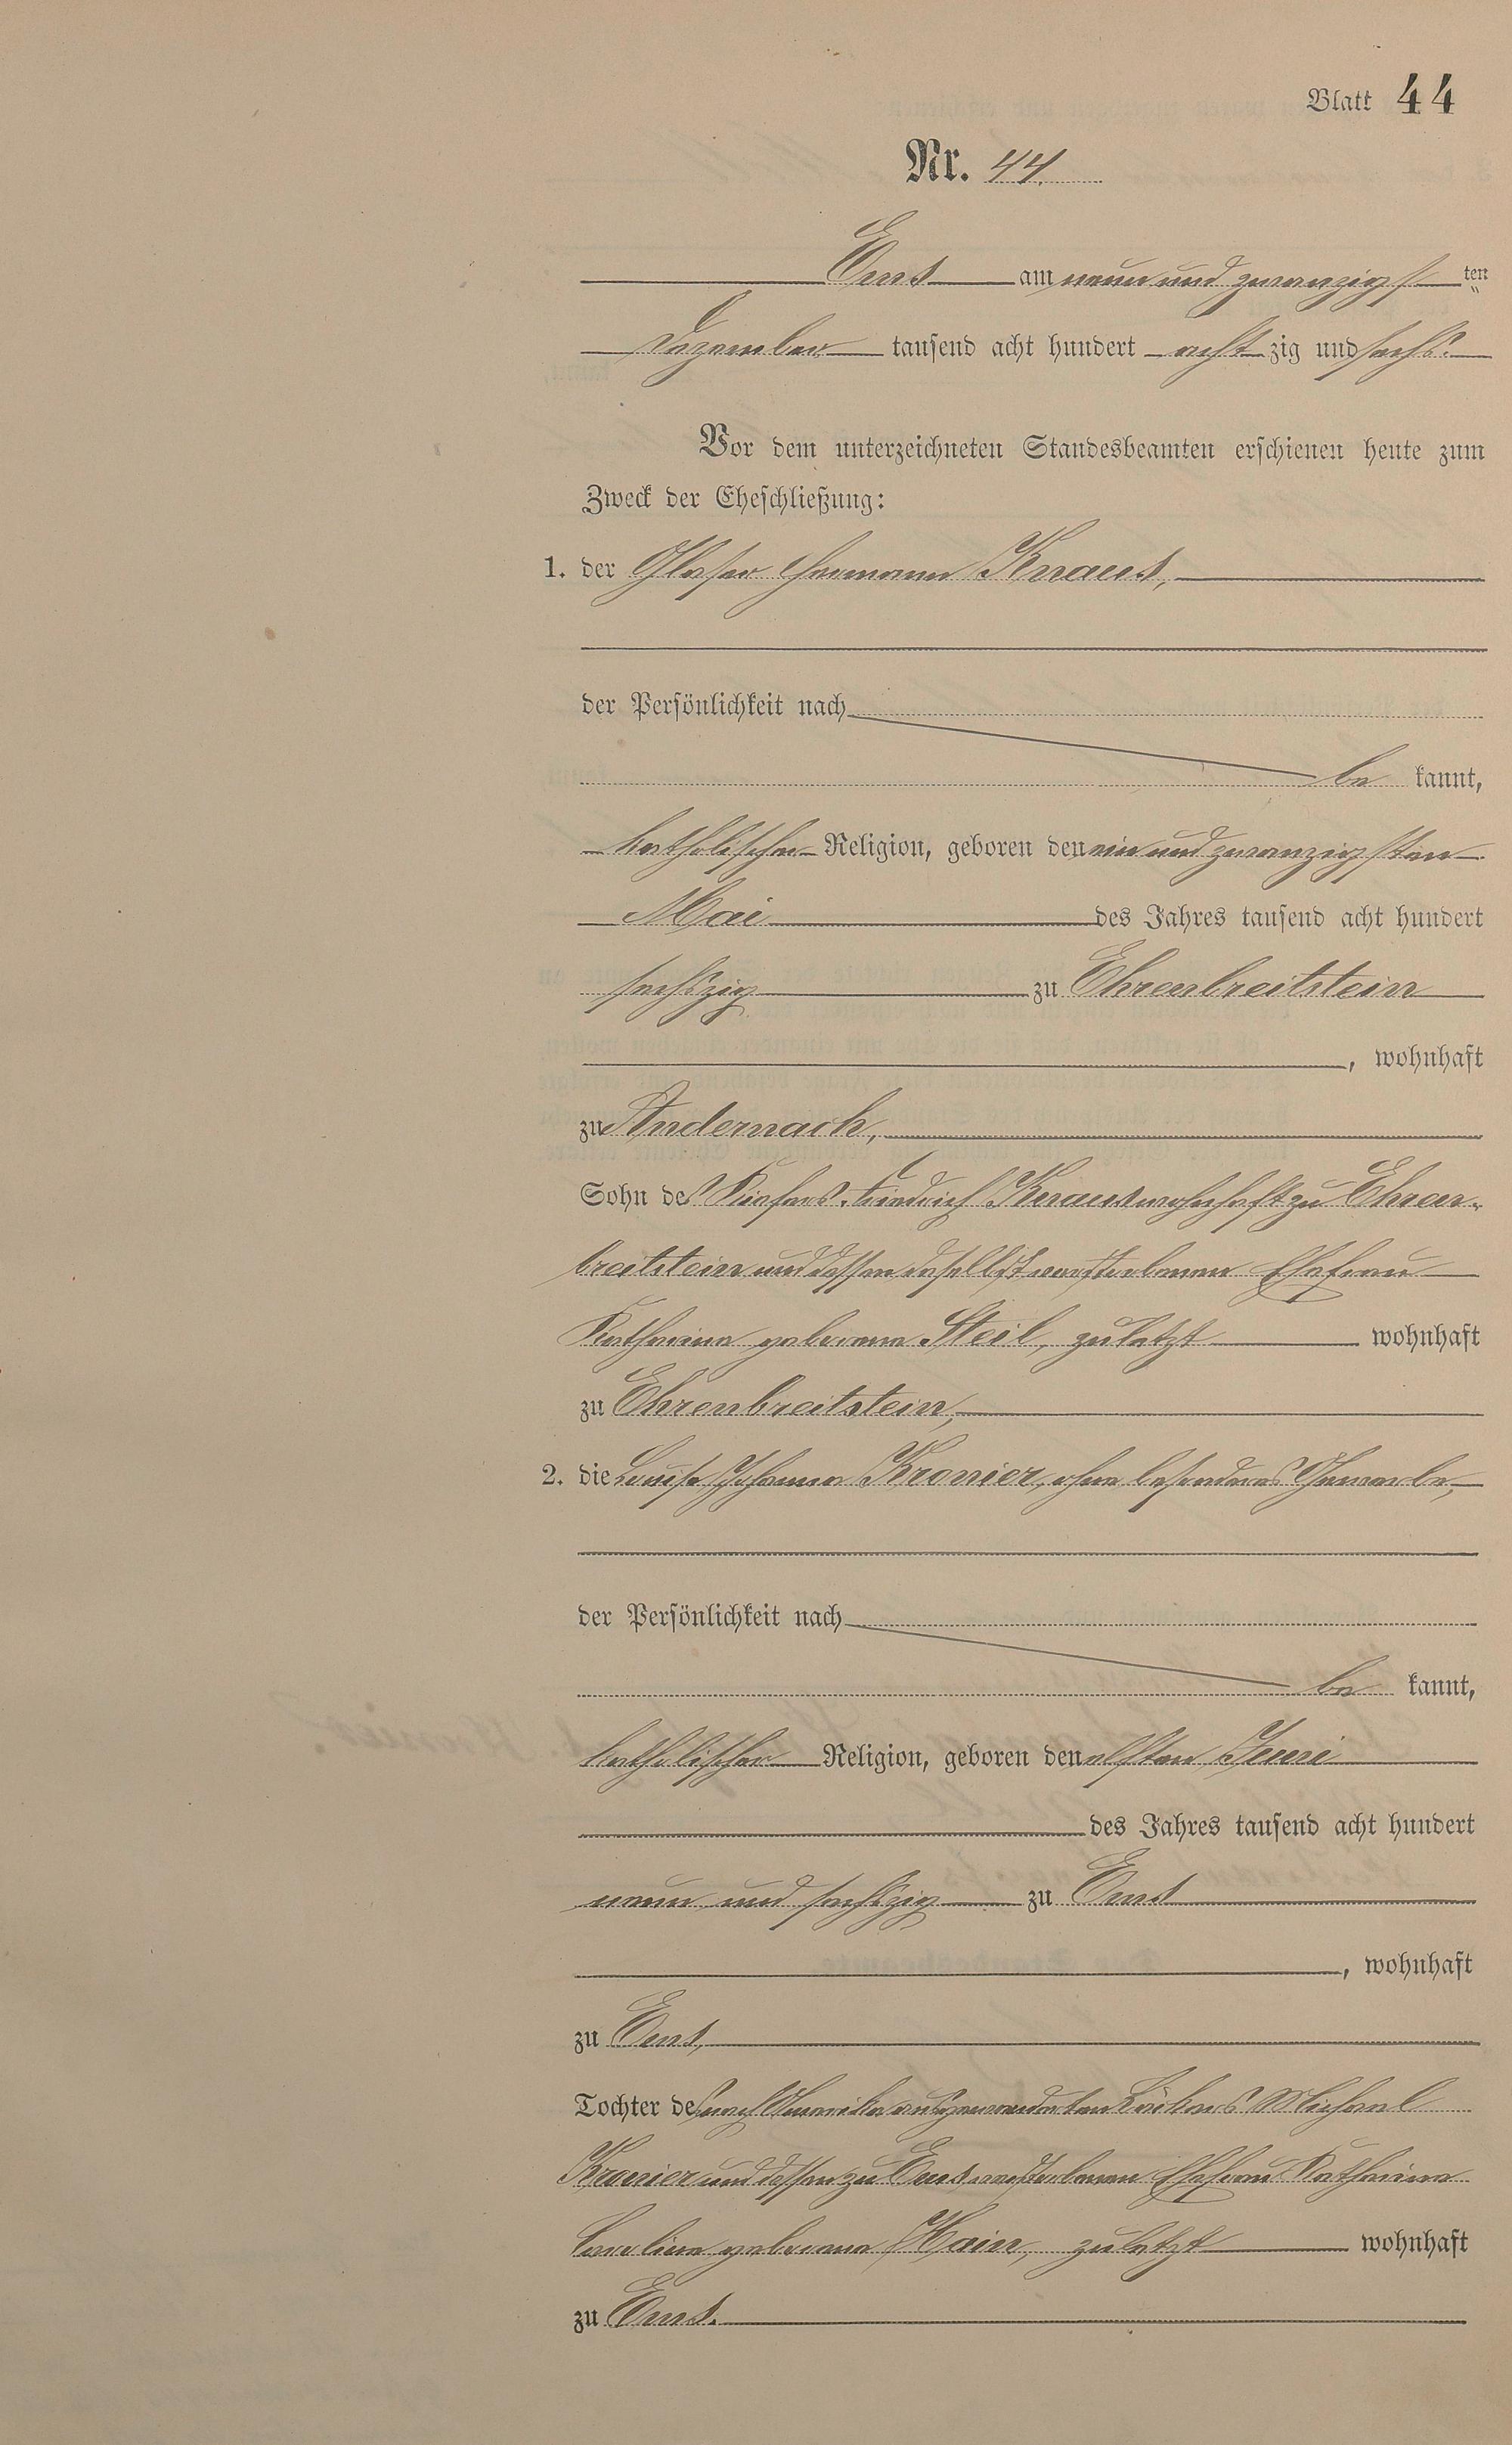 Blatt 44
Nr. 44.
Ems am neun und zwanzigsten
Dezember tausend acht hundert achtzig und sechs.
Vor dem unterzeichneten Standesbeamten erschienen heute zum
Zweck der Eheschließung:
1. der Glaser Hermann Knaus,
der Persönlichkeit nach
be kannt,
katholischer Religion, geboren den ein und zwanzigsten
Mai des Jahres tausend acht hundert
sechszig zu Ehrenbreitstein
, wohnhaft
zu Andernach,
Sohn des Küfers Friedrich Knaus wohnhaft zu Ehren-
breitstein und dessen daselbst verstorbenen Ehefrau
Katharina geborene Steil, zuletzt wohnhaft
zu Ehrenbreitstein,
2. die Louise Johanna Kronier, ohne besonderes Gewerbe,
der Persönlichkeit nach
be kannt,
katholischer Religion, geboren den elften Juni
des Jahres tausend acht hundert
neun und sechszig zu Ems
, wohnhaft
zu Ems,
Tochter des nach Amerika ausgewanderten Bäckers Michael
Kronier und dessen zu Ems verstorbenen Ehefrau Katharina
Carolina geborene Hain, zuletzt wohnhaft
zu Ems.